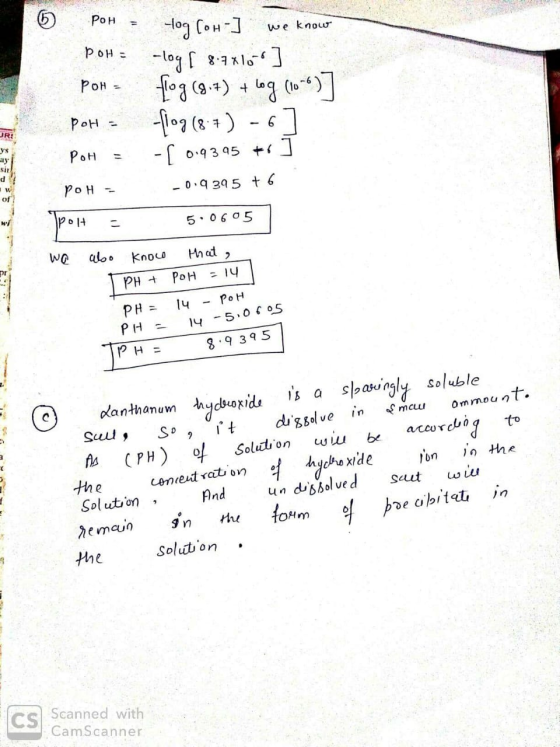 (b) POH = -log [OH-] we know
POH = -log [ 8.7x10-6 ]
POH = -[log (8.7) + log (10-6)]
POH = -[log (8.7) - 6 ]
POH = -[ 0.9395 +6 ]
POH = -0.9395 + 6
POH = 5.0605
We also know that,
PH + POH = 14
PH = 14 - POH
PH = 14 - 5.0605
PH = 8.9395
(c) Lanthanum hydroxide is a sparingly soluble
salt, so, it dissolve in small ammount.
As (PH) of solution will be acarding to
the concentration of hydroxide ion in the
solution, And undissolved salt will
remain in the form of precipitate in
the solution.
CS Scanned with
CamScanner